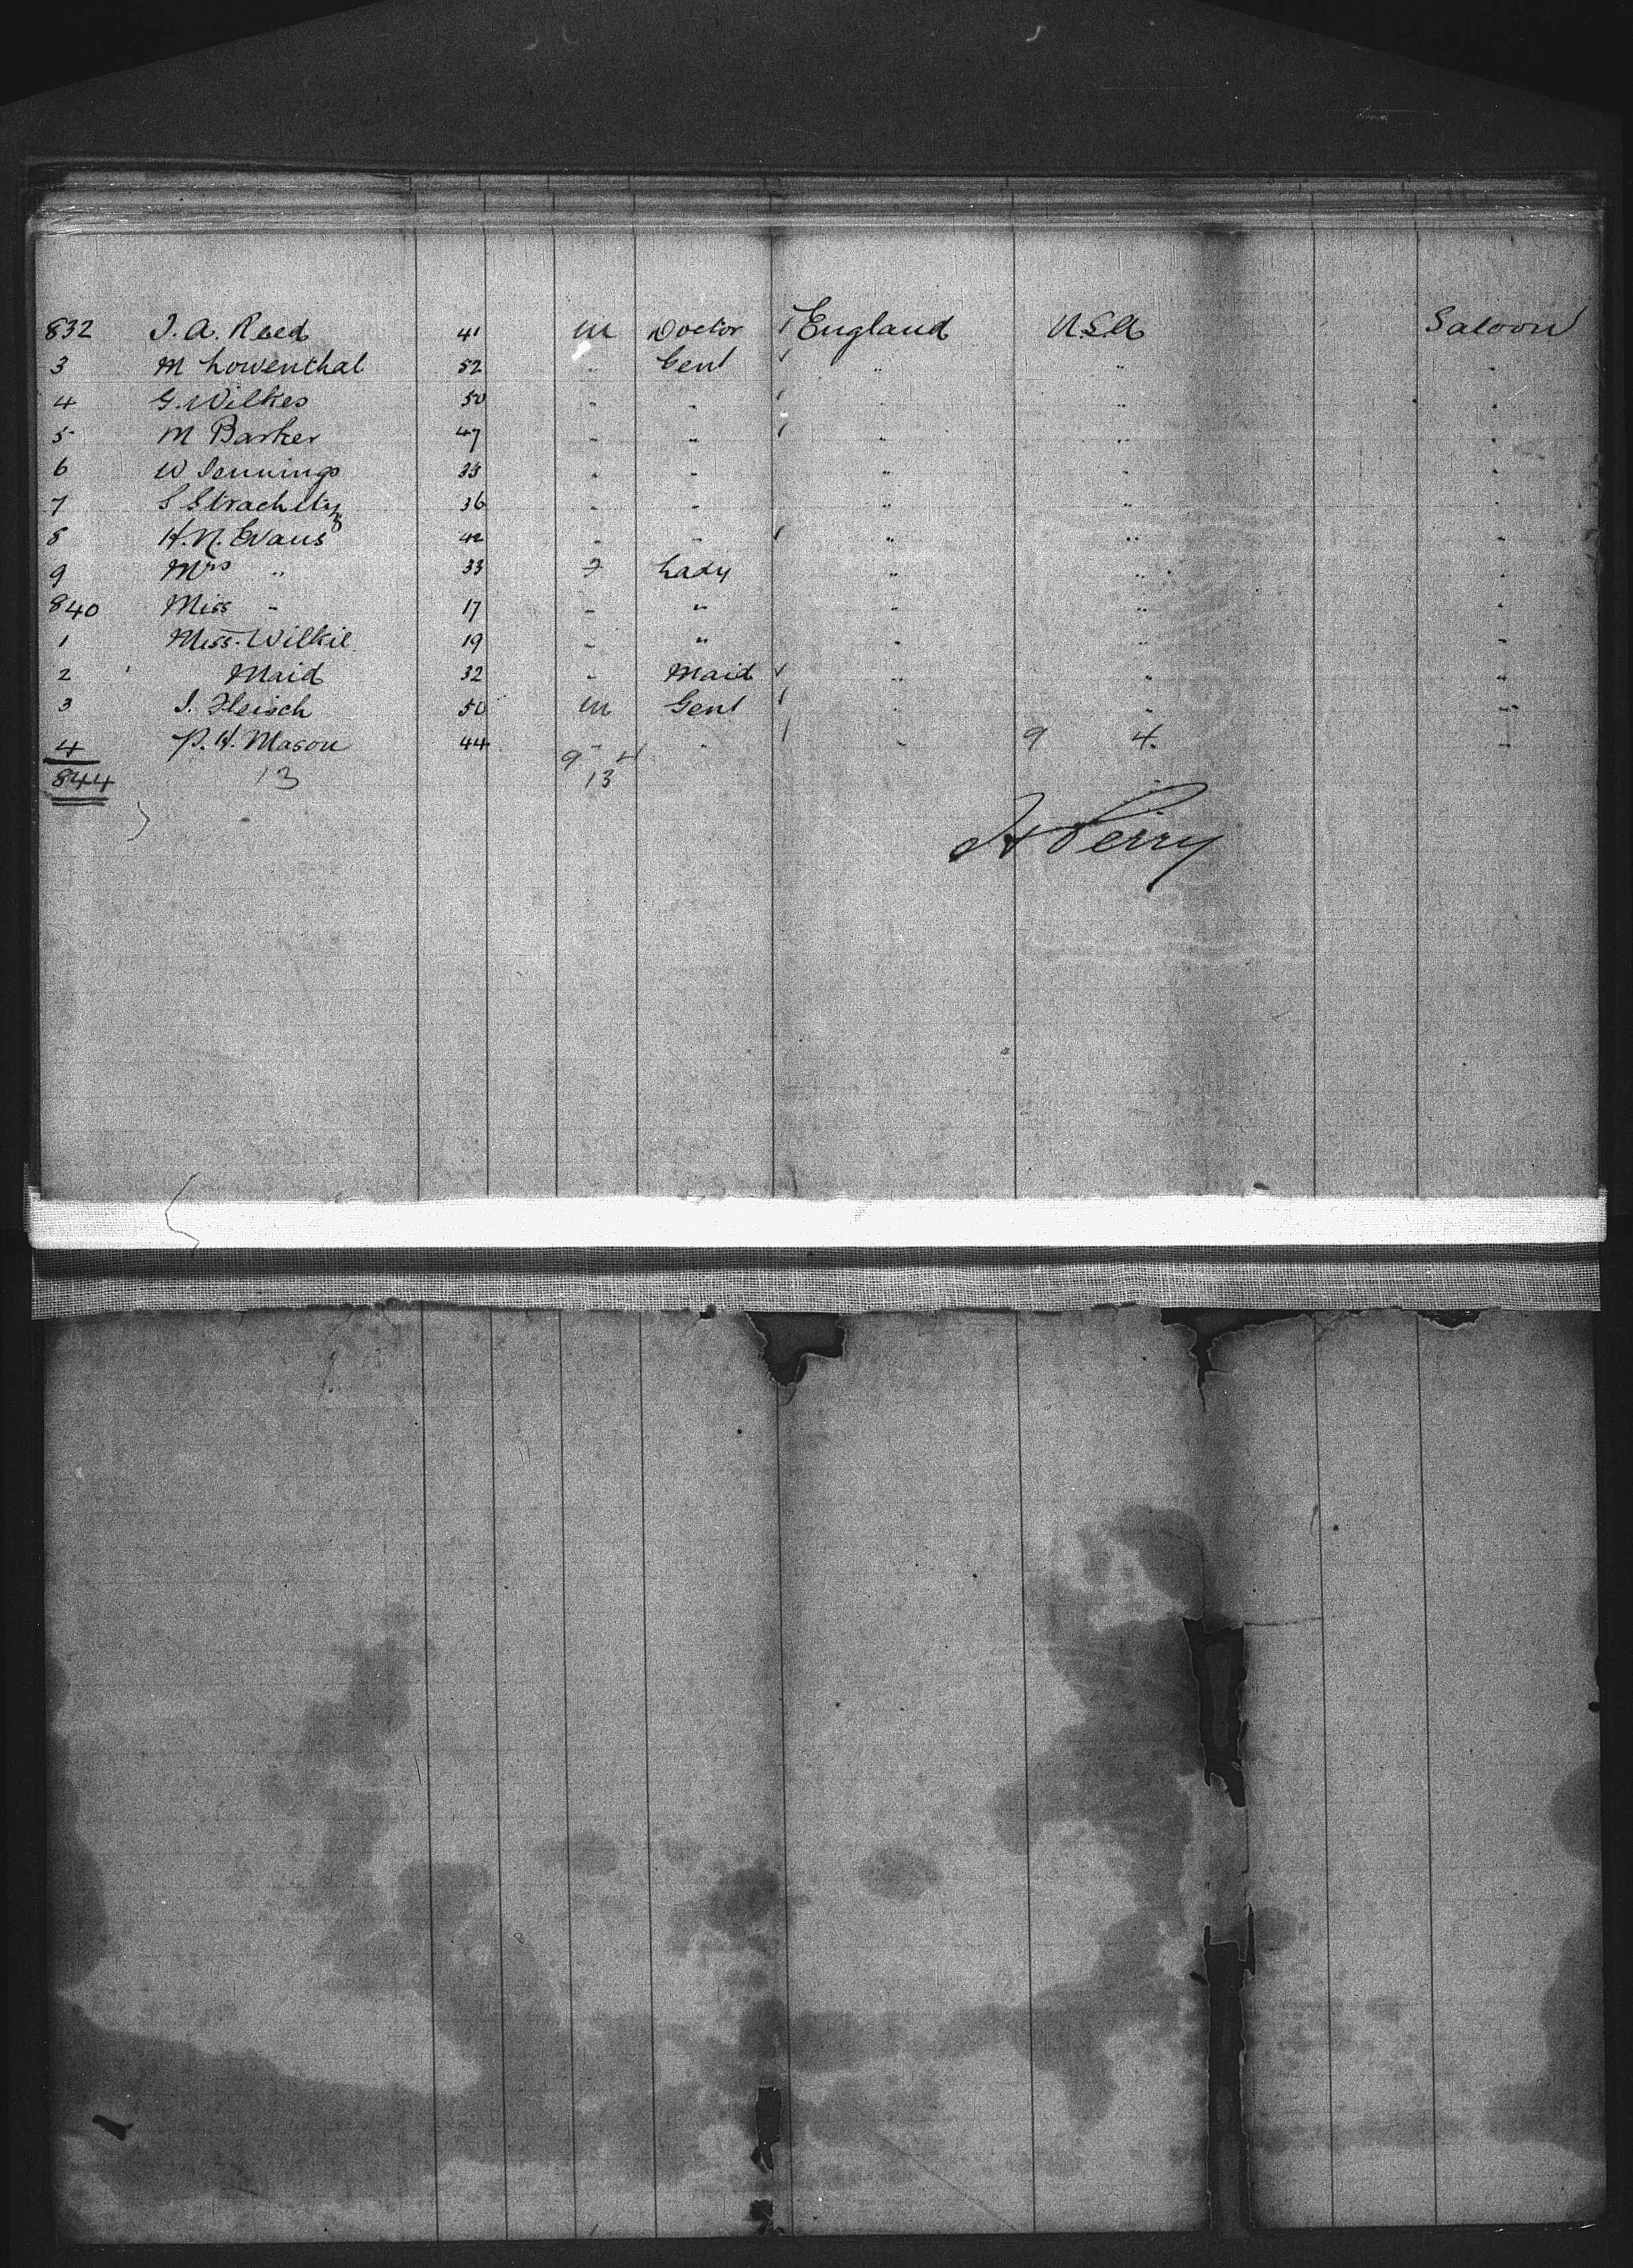 832 J. A. Reed 41 m Doctor England U.S.A Saloon
3 M Lowenthal 52 " Gent " " "
4 G. Wilkes 50 " " " " "
5 M Barker 47 " " " " "
6 W Jennings 33 " " " " "
7 S 36 " " " " "
8 H. N. Evans 42 " " " " "
9 Mrs " 33 f Lady " " "
840 Miss " 17 " " " " "
1 Miss Wilkie 19 " " " " "
2 Maid 32 " Maid " " "
3 J. Fleisch 50 m Gent " " "
4 P. H. Mason 44 " " " 9 4 "
9 4
844 13 13
H Perry